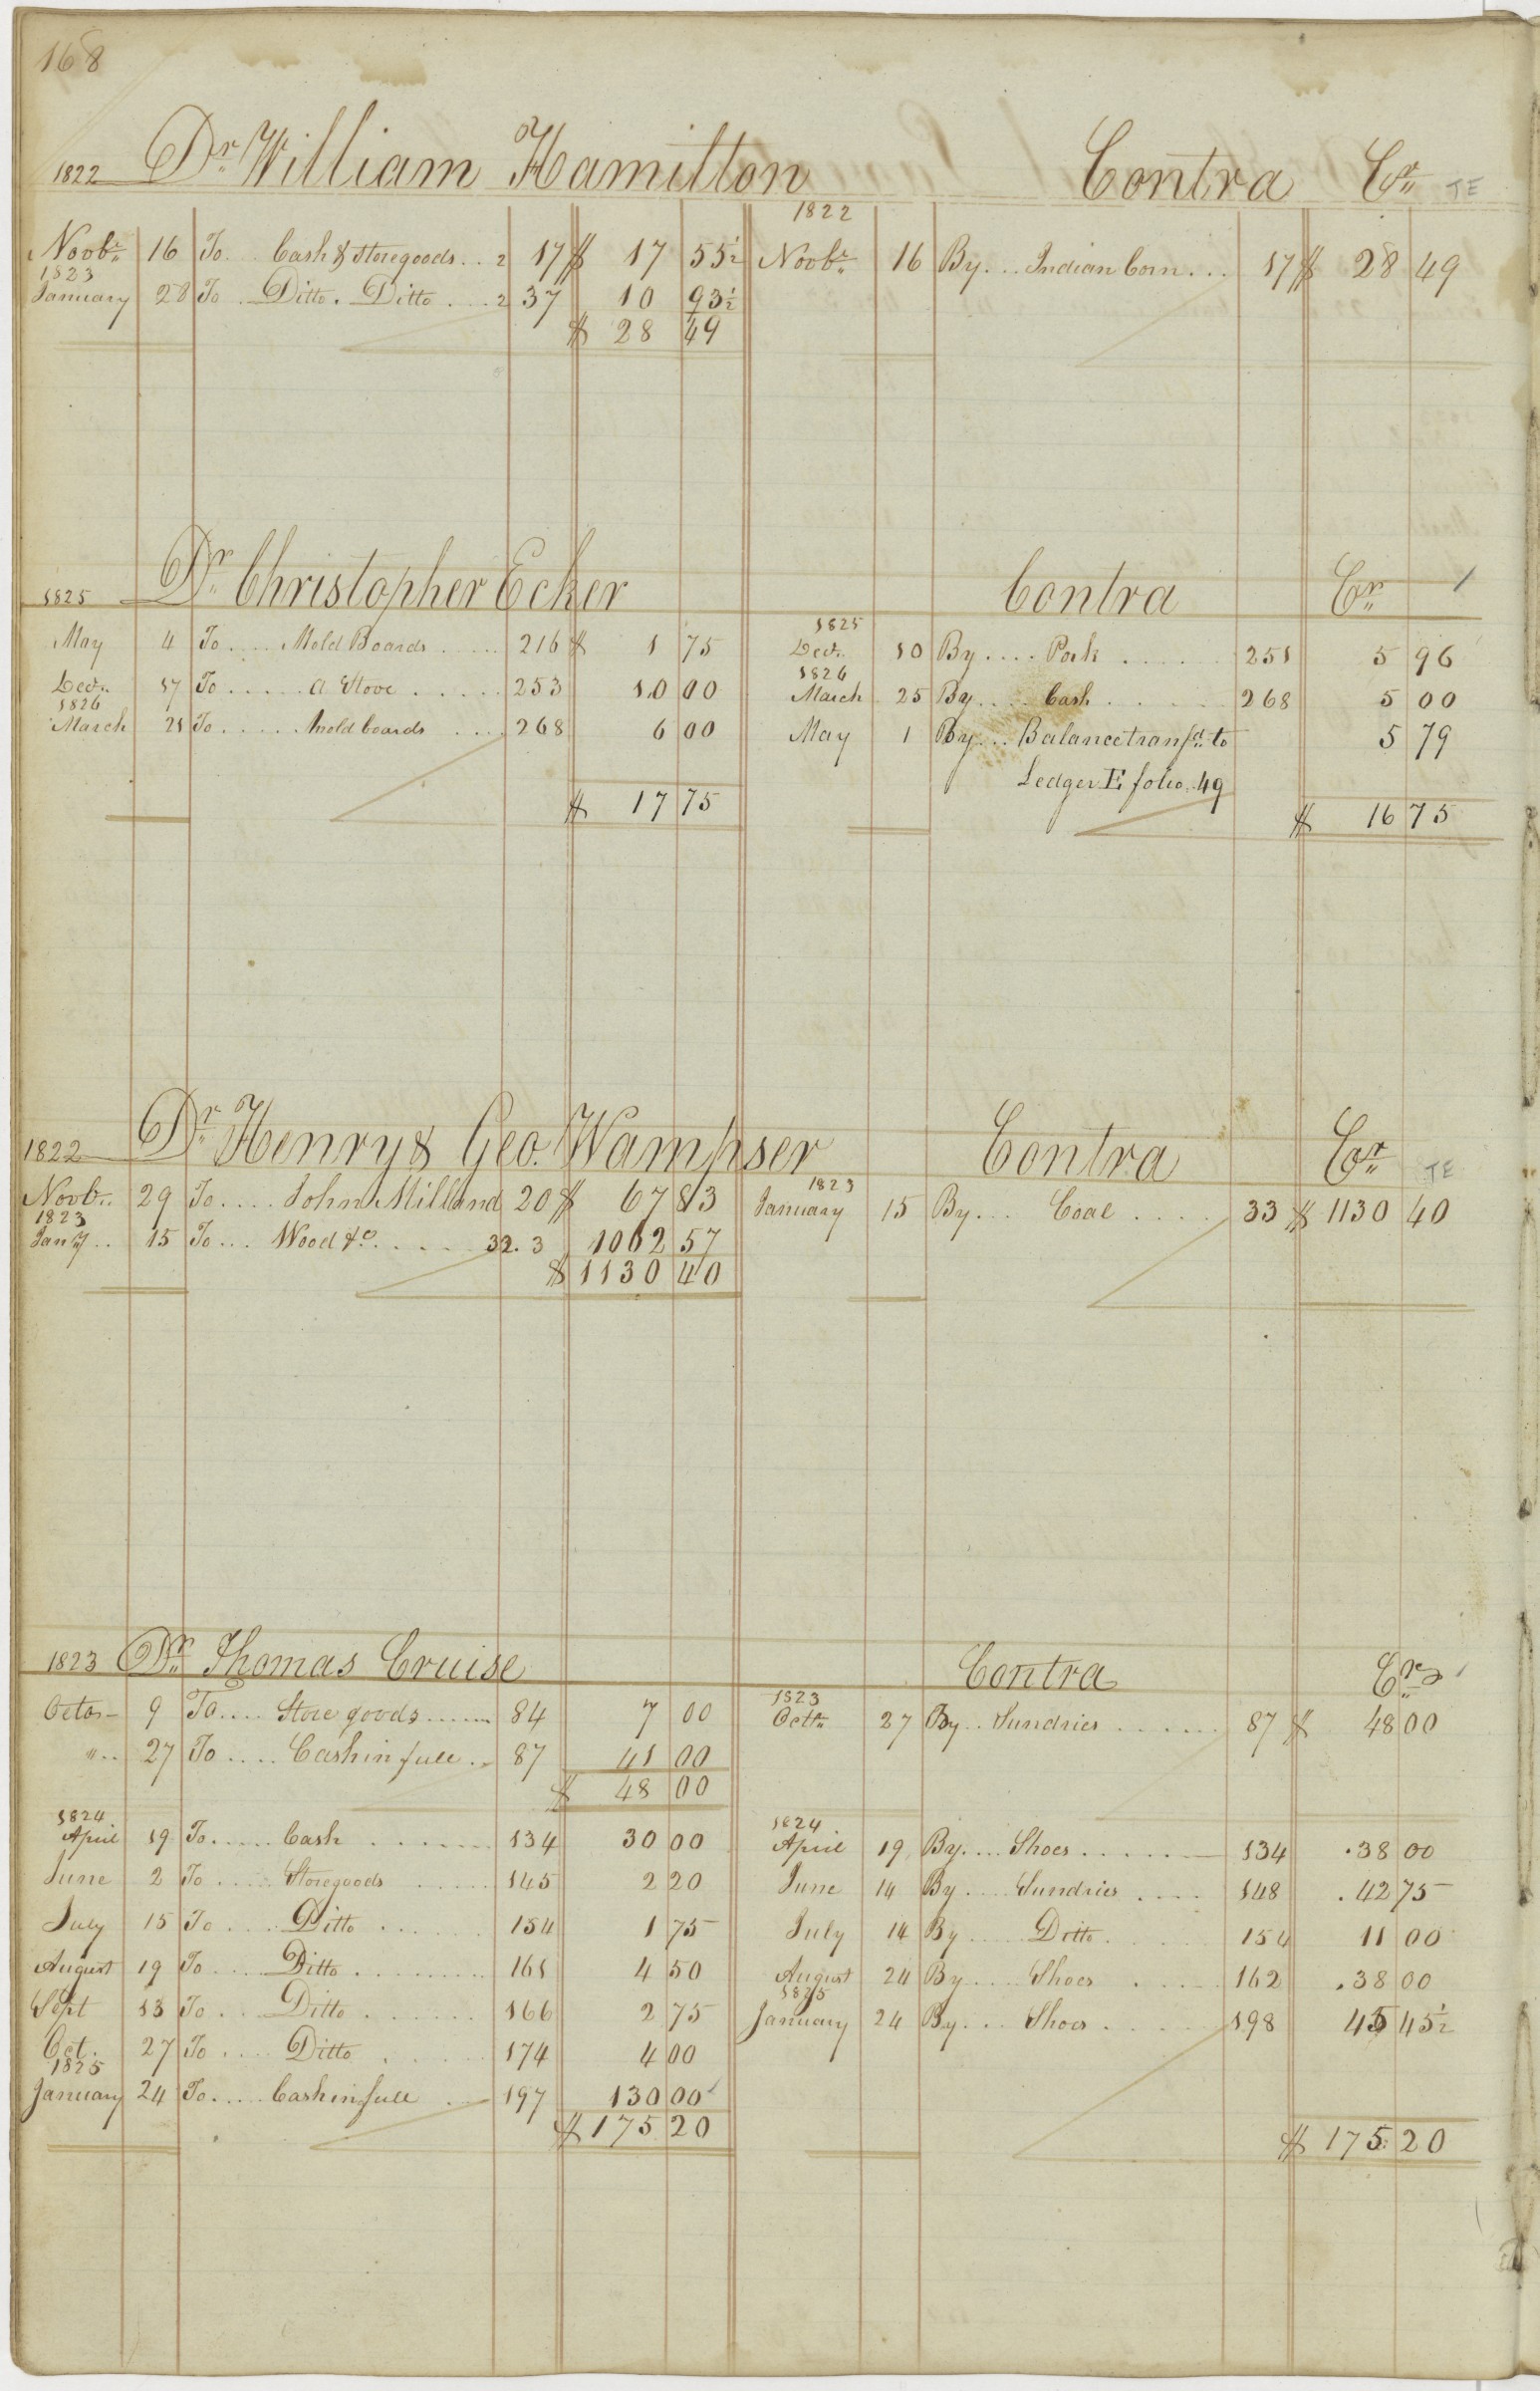 168
1822 Dr. William Hamilton Contra Cr. TE
1822
Novbr. 16 To .. Cash & Storegoods .. 2 17 $ 17 55½ Novbr. 16 By ... Indian Corn ... 17 $ 28 49
1823
January 28 To .. Ditto . Ditto .... 2 37 10 93½
$ 28 49
1825 Dr. Christopher Ecker Contra Cr.
1825
May 4 To .... Mold Boards .... 216 $ 1 75 Decr. 10 By .... Pork ..... 251 5 96
1826
Decr. 17 To ..... A Stove ...... 253 10 00 March 25 By .... Cash ..... 268 5 00
1826
March 21 To ..... Mold boards .... 268 6 00 May 1 By ... Balance transfd. to 5 79
Ledger E folio. 49
$ 17 75 $ 16 75
1822 Dr. Henry & Geo. Wampser Contra Cr. TE
1823
Novbr. 29 To .... John Milland 20 $ 67 83 January 15 By ... Coal .... 33 $ 1130 40
1823
Jany .. 15 To ... Wood &c. .... 32. 3 1062 57
$ 1130 40
1823 Dr. Thomas Cruise Contra Cr.
1823
Octor 9 To .... Store goods ...... 84 7 00 Octr. 27 By .. Sundries ...... 87 $ 48 00
" .. 27 To .... Cash in full .. 87 41 00
$ 48 00
1824 1824
April 19 To ..... Cash ...... 134 30 00 April 19 By .... Shoes ...... 134 .38 00
June 2 To ..... Storegoods ..... 145 2 20 June 14 By .... Sundries .... 148 . 42 75
July 15 To .... Ditto ...... 154 1 75 July 14 By .... Ditto ..... 154 11 00
August 19 To .... Ditto ........ 161 4 50 August 24 By .... Shoes .... 162 .38 00
1825
Sept 13 To ... Ditto ....... 166 2 75 January 24 By ... Shoes ..... 198 45 45½
Oct. 27 To .... Ditto ...... 174 4 00
1825
January 24 To .... Cash in full ... 197 130 00
$ 175 20 $ 175 20